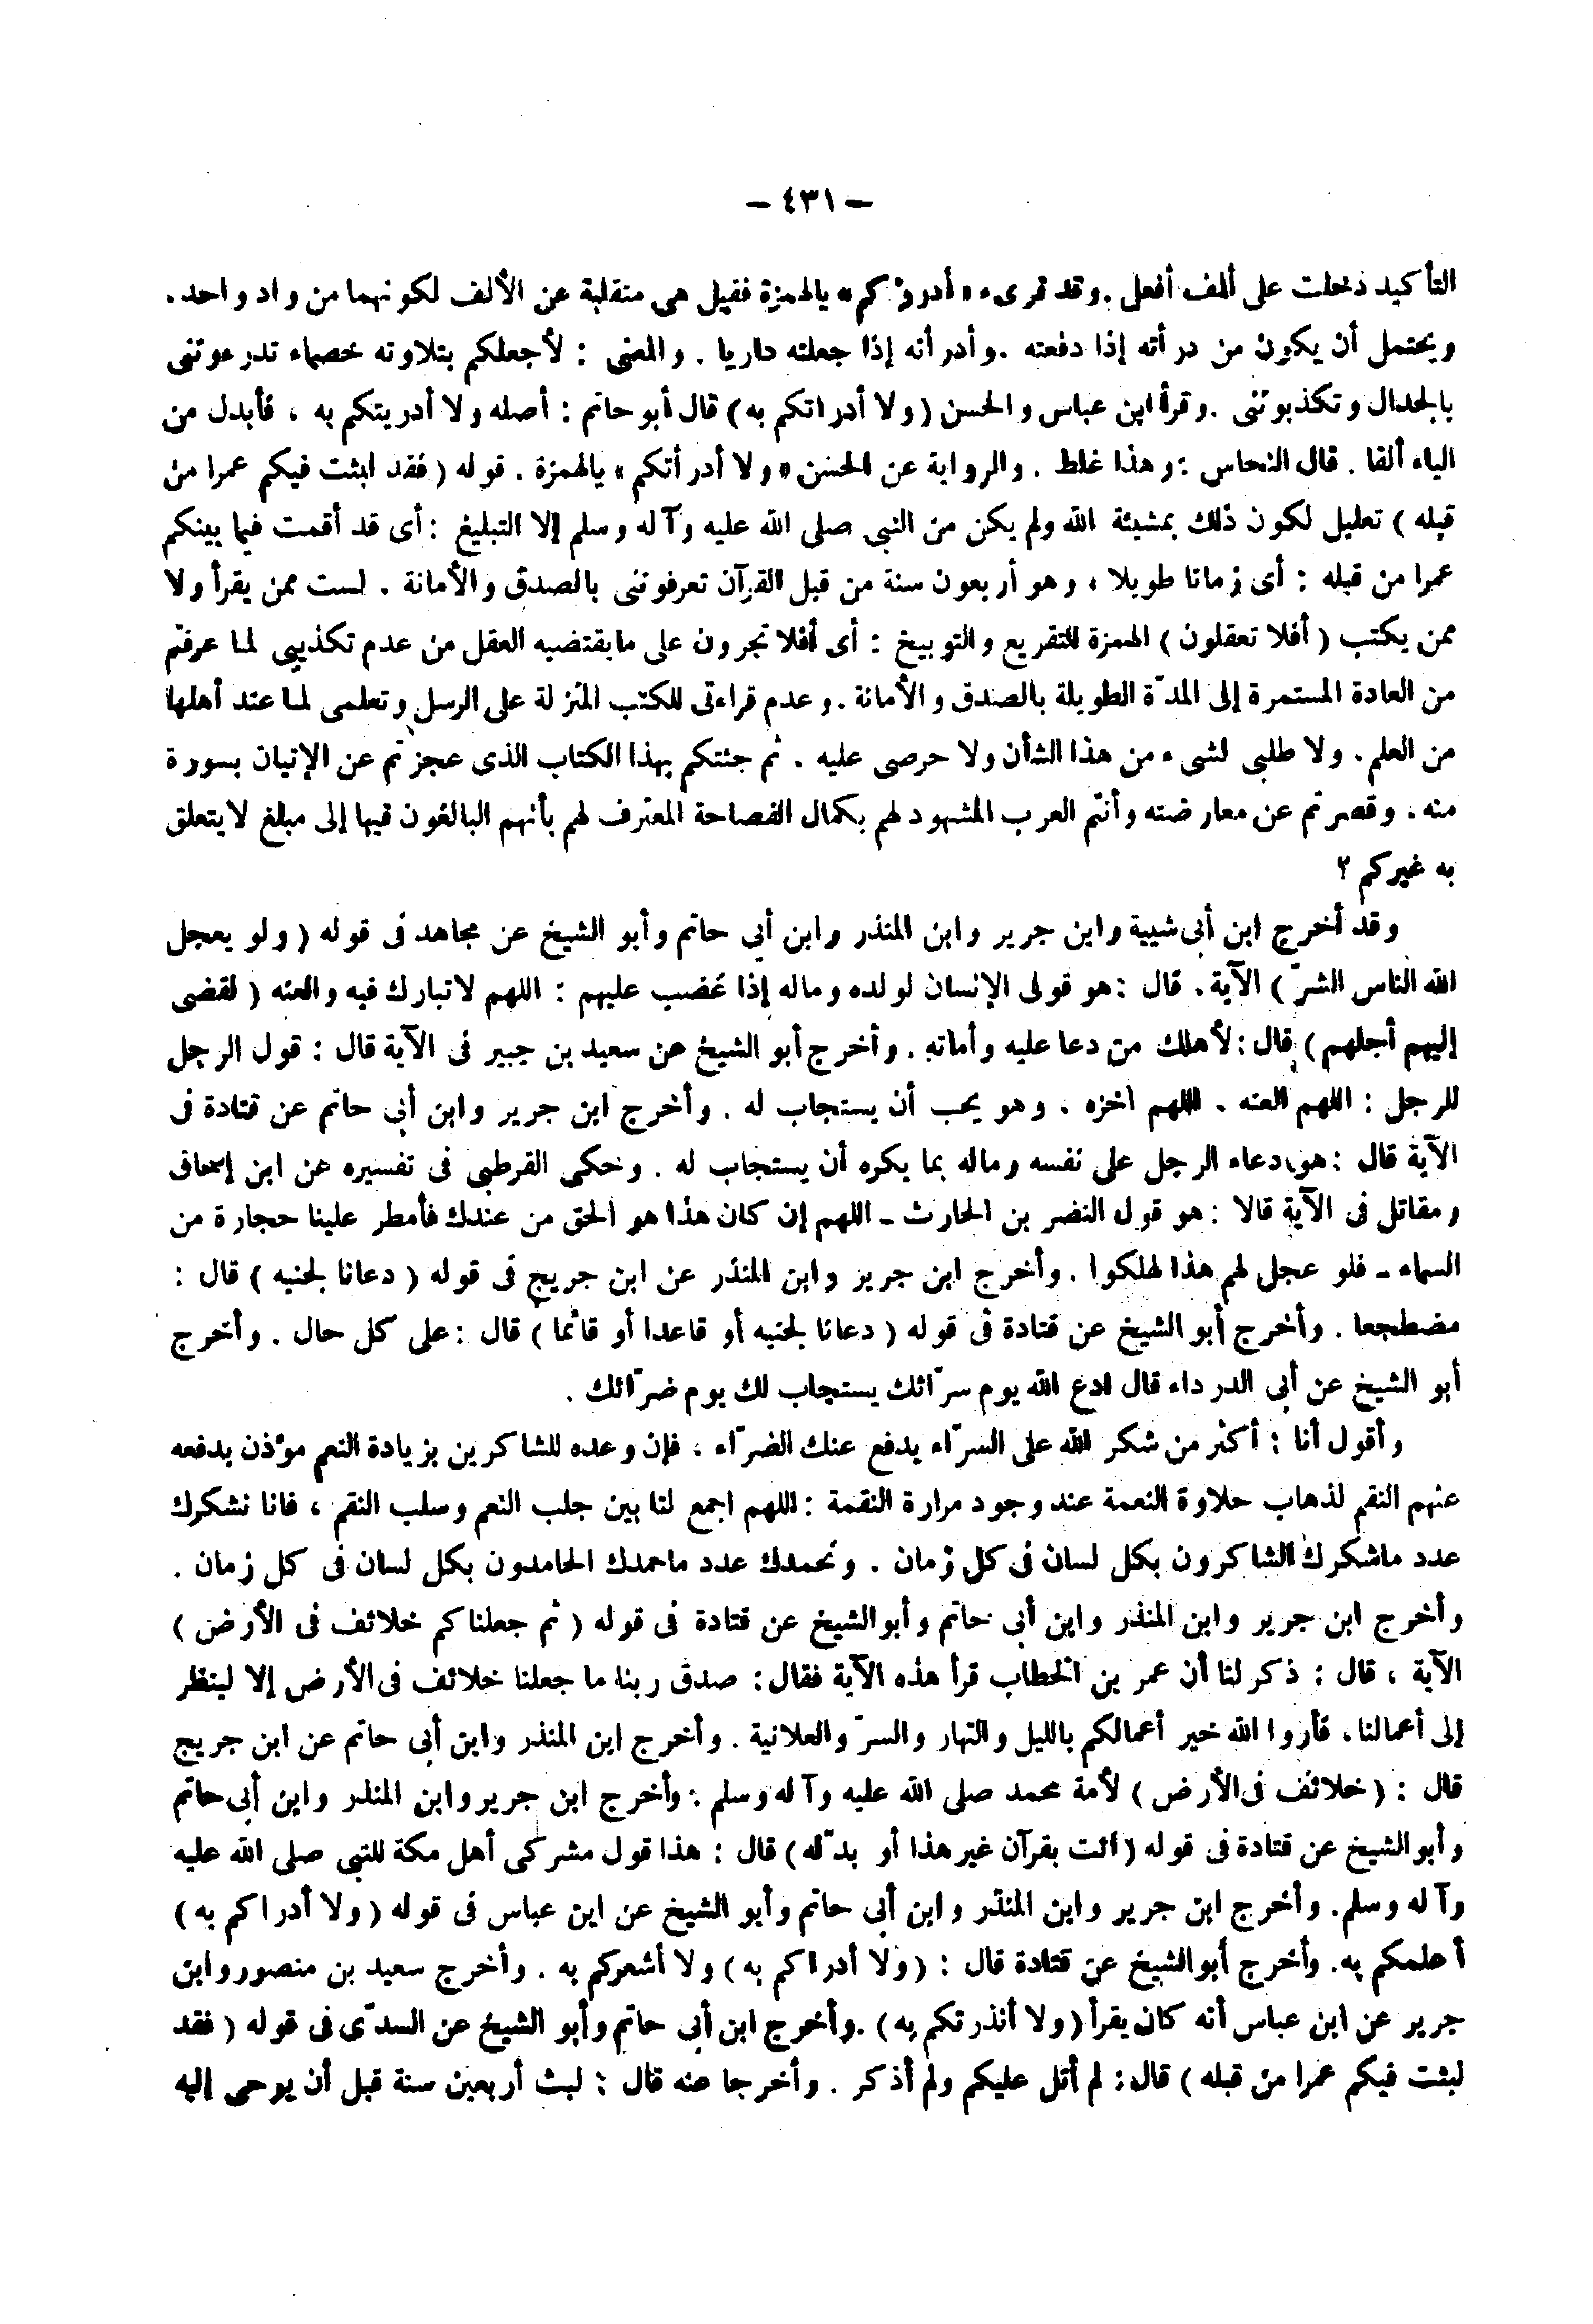 — ٤٣١ —
التأكيد دخلت على ألف أفعل . وقد قرىء « أدرؤكم » بالهمزة فقيل هى منقلبة عن الألف لكونهما من واد واحد .
ويحتمل أن يكون من درأته إذا دفعته . وأدرأته إذا جعلته داريا . والمعنى : لأجعلكم بتلاوته خصماء تدرءوننى
بالجدال وتكذبوننى . وقرأ ابن عباس والحسن ( ولا أدراتكم به ) قال أبو حاتم : أصله ولا أدريتكم به ، فأبدل من
الياء ألفا . قال النحاس : وهذا غلط . والرواية عن الحسن « ولا أدرأتكم » بالهمزة . قوله ( فقد لبثت فيكم عمرا من
قبله ) تعليل لكون ذلك بمشيئة الله ولم يكن من النبى صلى الله عليه وآله وسلم إلا التبليغ : أى قد أقمت فيما بينكم
عمرا من قبله : أى زمانا طويلا ، وهو أربعون سنة من قبل القرآن تعرفوننى بالصدق والأمانة . لست ممن يقرأ ولا
ممن يكتب ( أفلا تعقلون ) الهمزة للتقريع والتوبيخ : أى أفلا تجرون على مايقتضيه العقل من عدم تكذيبى لما عرفتم
من العادة المستمرة إلى المدّة الطويلة بالصدق والأمانة . وعدم قراءتى للكتب المنزلة على الرسل وتعلمى لما عند أهلها
من العلم . ولا طلبى لشىء من هذا الشأن ولا حرصى عليه . ثم جئتكم بهذا الكتاب الذى عجزتم عن الإتيان بسورة
منه . وقصرتم عن معارضته وأنتم العرب المشهود لهم بكمال الفصاحة المعترف لهم بأنهم البالغون فيها إلى مبلغ لايتعلق
به غيركم ؟
وقد أخرج ابن أبى شيبة وابن جرير وابن المنذر وابن أبي حاتم وأبو الشيخ عن مجاهد فى قوله ( ولو يعجل
الله الناس الشرّ ) الآية . قال : هو قولى الإنسان لولده وماله إذا غضب عليهم : اللهم لاتبارك فيه والعنه ( لقضى
إليهم أجلهم ) قال : لأهلك من دعا عليه وأماته . وأخرج أبو الشيخ عن سعيد بن جبير فى الآية قال : قول الرجل
للرجل : اللهم العنه . اللهم اخزه . وهو يحب أن يستجاب له . وأخرج ابن جرير وابن أبى حاتم عن قتادة فى
الآية قال : هو دعاء الرجل على نفسه وماله بما يكره أن يستجاب له . وحكى القرطبى فى تفسيره عن ابن إسحاق
ومقاتل فى الآية قالا : هو قول النضر بن الحارث ـ اللهم إن كان هذا هو الحق من عندك فأمطر علينا حجارة من
السماء ـ فلو عجل لهم هذا لهلكوا . وأخرج ابن جرير وابن المنذر عن ابن جريج فى قوله ( دعانا لجنبه ) قال :
مضطجعا . وأخرج أبو الشيخ عن قتادة فى قوله ( دعانا لجنبه أو قاعدا أو قائما ) قال : على كل حال . وأخرج
أبو الشيخ عن أبى الدرداء قال ادع الله يوم سرّائك يستجاب لك يوم ضرّائك .
وأقول أنا : أكثر من شكر الله على السرّاء يدفع عنك الضرّاء ، فإن وعده للشاكرين بزيادة النعم مؤذن بدفعه
عنهم النقم لذهاب حلاوة النعمة عند وجود مرارة النقمة : اللهم اجمع لنا بين جلب النعم وسلب النقم ، فانا نشكرك
عدد ماشكرك الشاكرون بكل لسان فى كل زمان . ونحمدك عدد ماحمدك الحامدون بكل لسان فى كل زمان .
وأخرج ابن جرير وابن المنذر وابن أبى حاتم وأبو الشيخ عن قتادة فى قوله ( ثم جعلناكم خلائف فى الأرض )
الآية ، قال : ذكر لنا أن عمر بن الخطاب قرأ هذه الآية فقال : صدق ربنا ما جعلنا خلائف فى الأرض إلا لينظر
إلى أعمالنا ، فأروا الله خير أعمالكم بالليل والنهار والسرّ والعلانية . وأخرج ابن المنذر وابن أبى حاتم عن ابن جريج
قال : ( خلائف فى الأرض ) لأمة محمد صلى الله عليه وآله وسلم : وأخرج ابن جرير وابن المنذر وابن أبى حاتم
وأبو الشيخ عن قتادة فى قوله ( ائت بقرآن غير هذا أو بدّله ) قال : هذا قول مشركى أهل مكة للنبى صلى الله عليه
وآله وسلم . وأخرج ابن جرير وابن المنذر وابن أبى حاتم وأبو الشيخ عن ابن عباس فى قوله ( ولا أدراكم به )
أعلمكم به . وأخرج أبو الشيخ عن قتادة قال : ( ولا أدراكم به ) ولا أشعركم به . وأخرج سعيد بن منصور وابن
جرير عن ابن عباس أنه كان يقرأ ( ولا أنذرتكم به ) . وأخرج ابن أبى حاتم وأبو الشيخ عن السدّى فى قوله ( فقد
لبثت فيكم عمرا من قبله ) قال : لم أتل عليكم ولم أذكر . وأخرجا عنه قال : لبث أربعين سنة قبل أن يوحى إليه